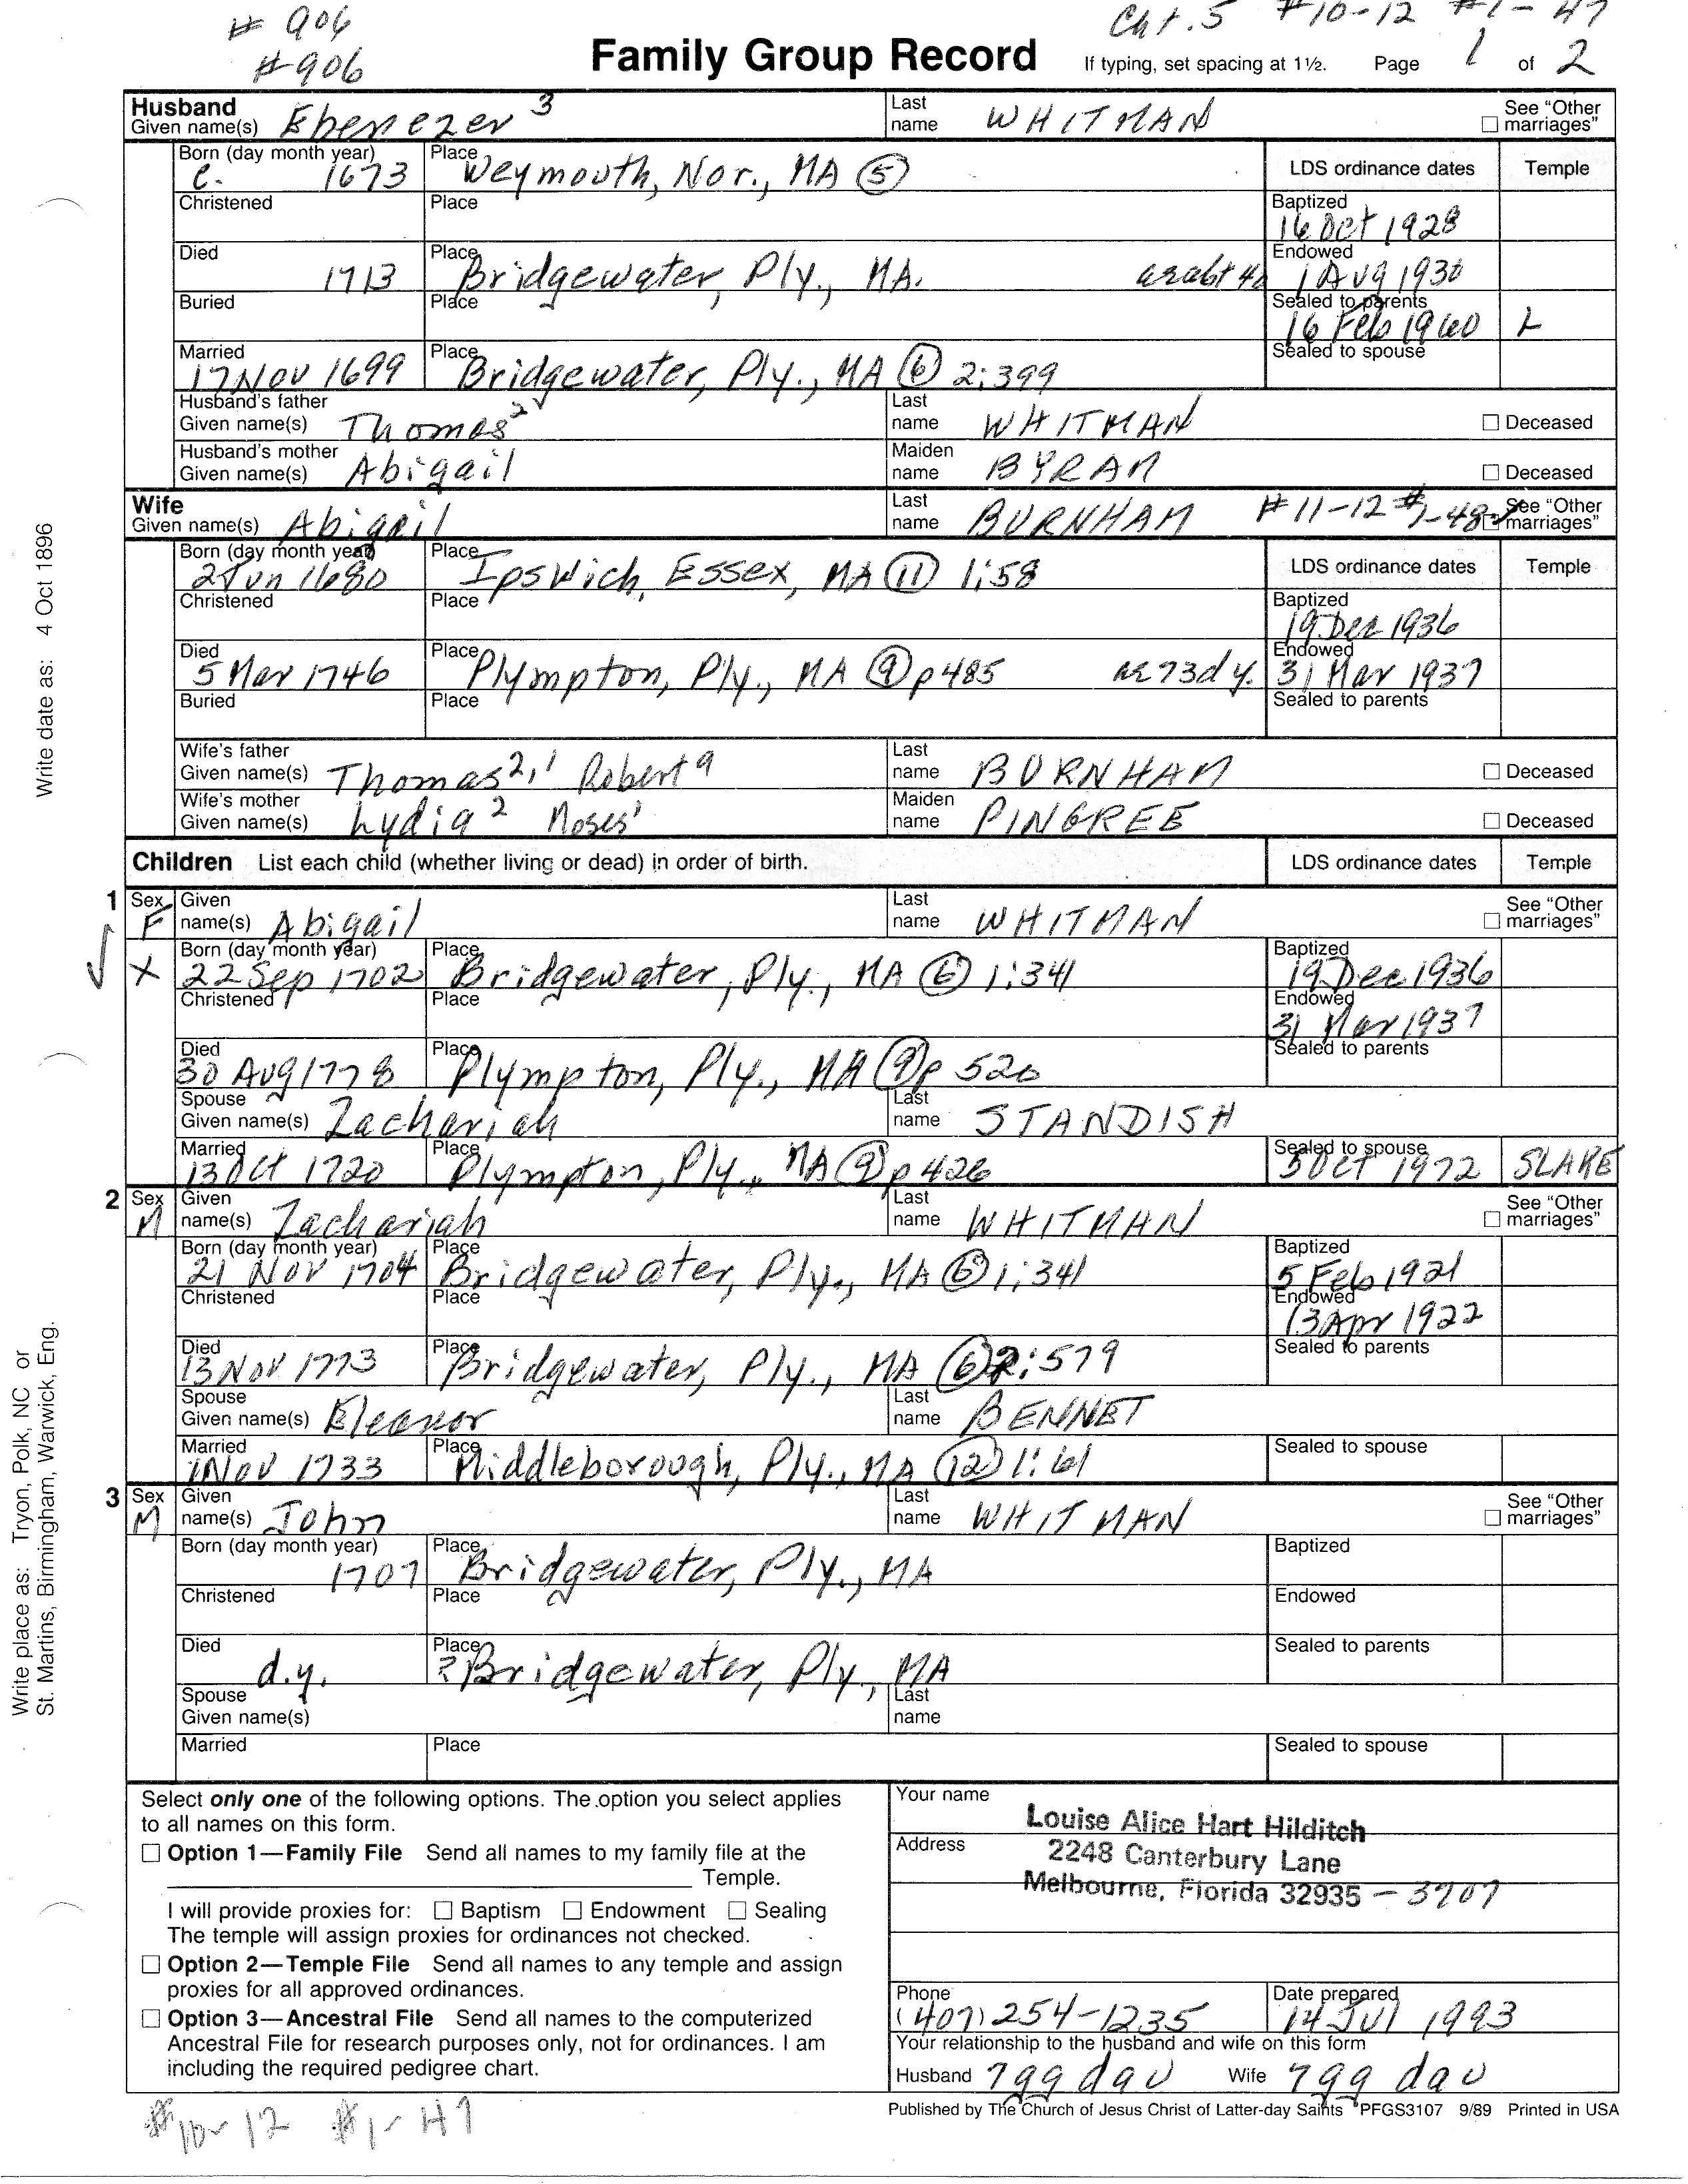 # 906 Cht. 5 #10-12 #1-47
#906 Family Group Record If typing, set spacing at 1½. Page 1 of 2
Husband
Given name(s) Ebenezer 3 Last name WHITMAN See "Other marriages"
Born (day month year) c. 1673 Place Weymouth, Nor., MA (5) LDS ordinance dates Temple
Christened Place Baptized 16 Oct 1928
Died 1713 Place Bridgewater, Ply., MA. aeabt 40 Endowed 1 Aug 1930
Buried Place Sealed to parents 16 Feb 1960 L
Married 17 Nov 1699 Place Bridgewater, Ply., MA (6) 2:399 Sealed to spouse
Husband's father
Given name(s) Thomas 2 Last name WHITMAN Deceased
Husband's mother
Given name(s) Abigail Maiden name BYRAM Deceased
Wife
Given name(s) Abigail Last name BURNHAM #11-12 #1-48 See "Other marriages"
Born (day month year) 2 Jun 1680 Place Ipswich, Essex, MA (11) 1:58 LDS ordinance dates Temple
Christened Place Baptized 19 Dec 1936
Died 5 Mar 1746 Place Plympton, Ply., MA (9) p 485 ae 73d y. Endowed 31 Mar 1937
Buried Place Sealed to parents
Wife's father
Given name(s) Thomas 2,1 Robert a Last name BURNHAM Deceased
Wife's mother
Given name(s) Lydia 2 Moses 1 Maiden name PINGREE Deceased
Children List each child (whether living or dead) in order of birth. LDS ordinance dates Temple
1 Sex F Given name(s) Abigail Last name WHITMAN See "Other marriages"
X Born (day month year) 22 Sep 1702 Place Bridgewater, Ply., MA (6) 1:341 Baptized 19 Dec 1936
Christened Place Endowed 31 Mar 1937
Died 30 Aug 1778 Place Plympton, Ply., MA (9) p 520 Sealed to parents
Spouse
Given name(s) Zachariah Last name STANDISH
Married 13 Oct 1720 Place Plympton, Ply., MA (9) p 426 Sealed to spouse 5 Oct 1972 SLAKE
2 Sex M Given name(s) Zachariah Last name WHITMAN See "Other marriages"
Born (day month year) 21 Nov 1704 Place Bridgewater, Ply., MA (6) 1:341 Baptized 5 Feb 1921
Christened Place Endowed 13 Apr 1922
Died 13 Nov 1773 Place Bridgewater, Ply., MA (6) 2:579 Sealed to parents
Spouse
Given name(s) Eleanor Last name BENNET
Married 1 Nov 1733 Place Middleborough, Ply., MA (12) 1:61 Sealed to spouse
3 Sex M Given name(s) John Last name WHITMAN See "Other marriages"
Born (day month year) 1707 Place Bridgewater, Ply., MA Baptized
Christened Place Endowed
Died d.y. Place ?Bridgewater, Ply., MA Sealed to parents
Spouse
Given name(s) Last name
Married Place Sealed to spouse
Select only one of the following options. The option you select applies
to all names on this form.
Option 1—Family File Send all names to my family file at the
Temple.
I will provide proxies for: Baptism Endowment Sealing
The temple will assign proxies for ordinances not checked.
Option 2—Temple File Send all names to any temple and assign
proxies for all approved ordinances.
Option 3—Ancestral File Send all names to the computerized
Ancestral File for research purposes only, not for ordinances. I am
including the required pedigree chart.
Your name Louise Alice Hart Hilditch
Address 2248 Canterbury Lane
Melbourne, Florida 32935 - 3707
Phone (407) 254-1235 Date prepared 14 Jul 1993
Your relationship to the husband and wife on this form
Husband 7gg dau Wife 7gg dau
Published by The Church of Jesus Christ of Latter-day Saints PFGS3107 9/89 Printed in USA
#10-12 #1-47
Write date as: 4 Oct 1896
Write place as: Tryon, Polk, NC or
St. Martins, Birmingham, Warwick, Eng.